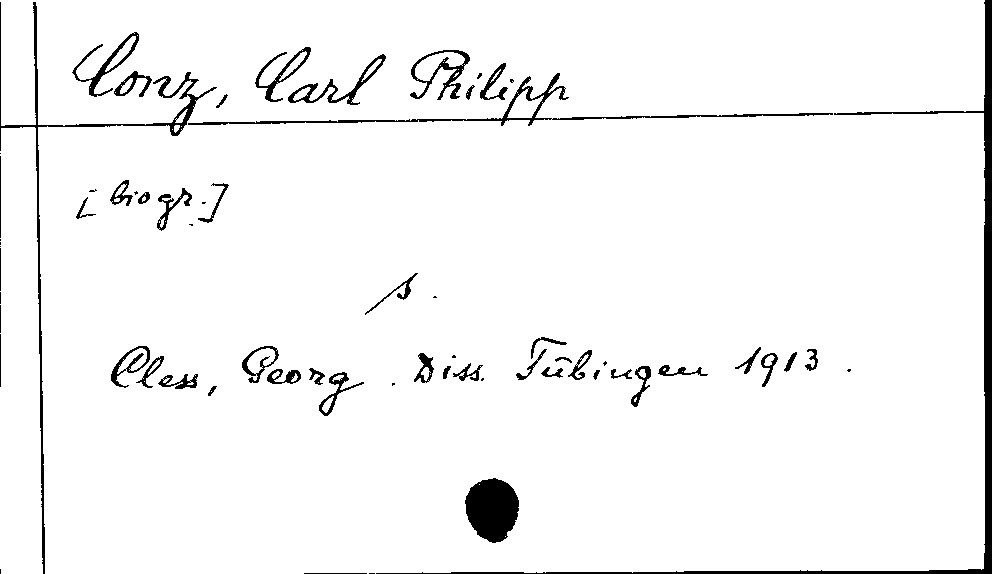 Conz, Carl Philipp
[biogr.]
s.
Cless, Georg. Diss. Tübingen 1913.